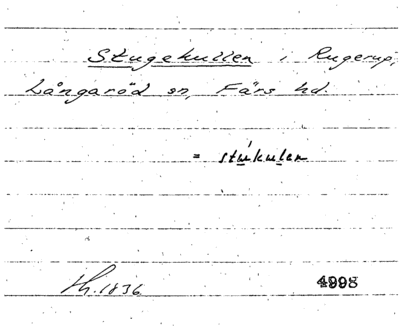 Stugekullen i Rugerup,
Långaröd sn, Färs hd.
= stúkulen
Th. 1836
4998